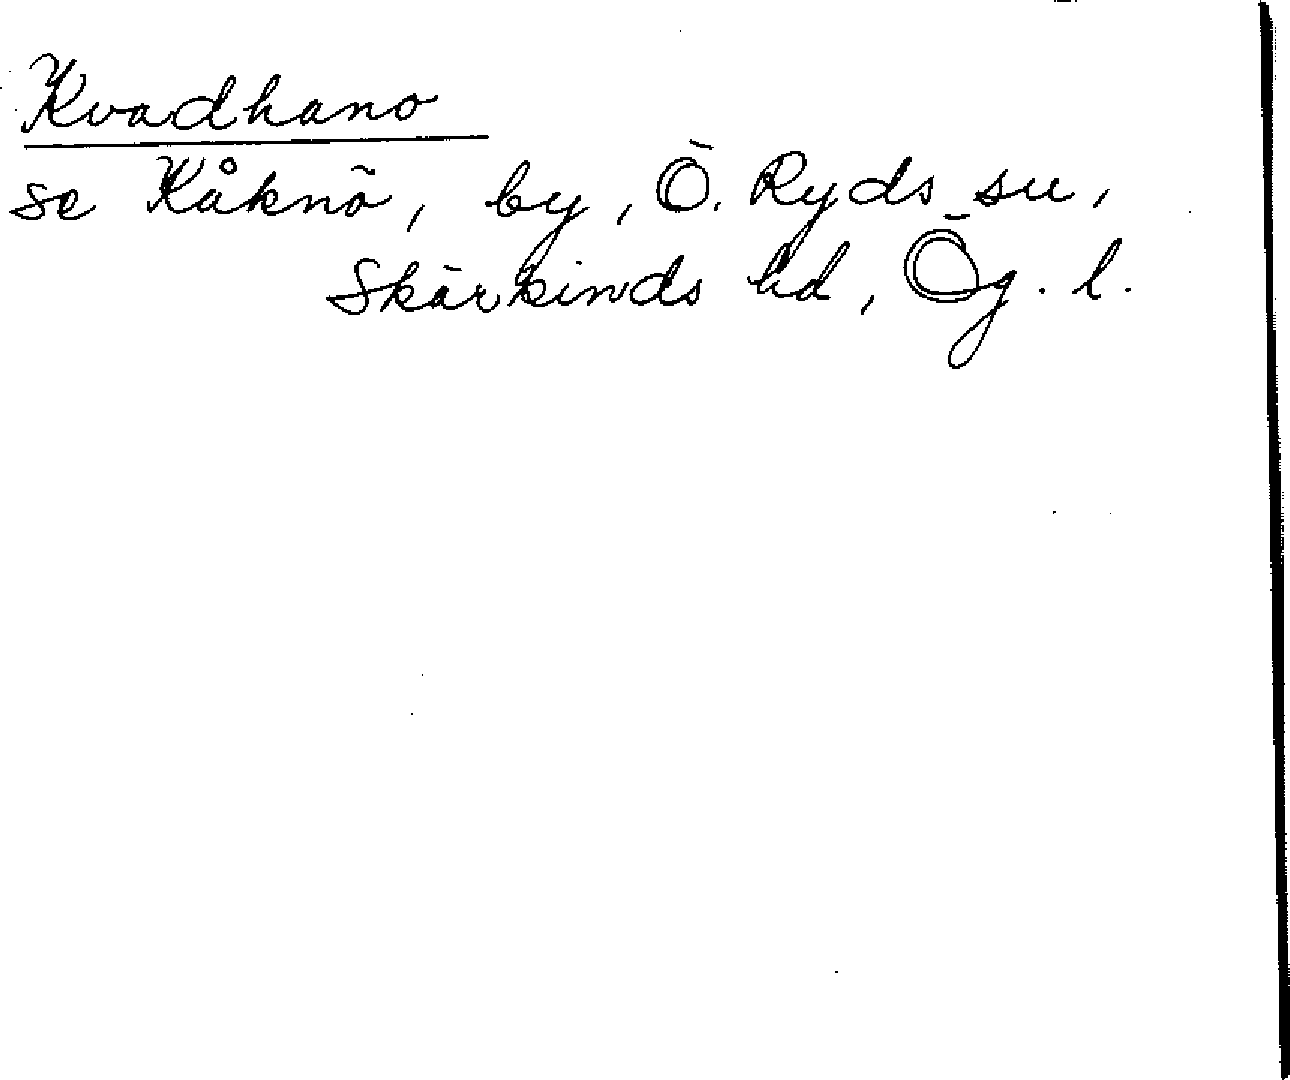 Kvadhano
se Kåknö, by, Ö. Ryds sn,
Skärkinds hd, Ög. l.